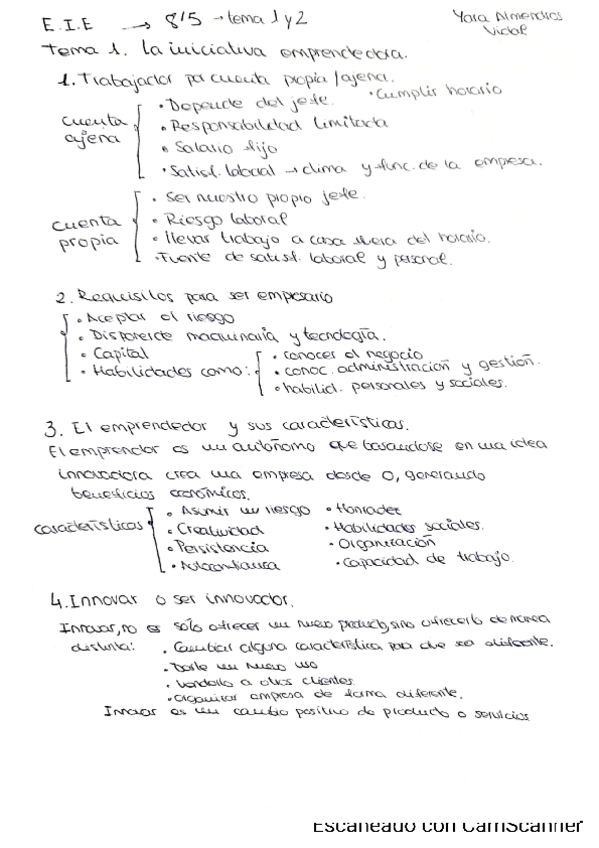 E.I.E → 8'5 → tema 1 y 2
Yara Almendros Vidal
Tema 1. La iniciativa emprendedora.
1. Trabajador por cuenta propia/ajena.
cuenta ajena
• Depende del jefe. • Cumplir horario
• Responsabilidad limitada
• Salario fijo
• Satisf. laboral → clima y func. de la empresa.
cuenta propia
• Ser nuestro propio jefe.
• Riesgo laboral
• llevar trabajo a casa fuera del horario.
• Fuente de satisf. laboral y personal.
2. Requisitos para ser empresario
• Aceptar el riesgo
• Disponer de maquinaria y tecnología.
• Capital
• Habilidades como:
• conocer el negocio
• conoc. administración y gestión.
• habilid. personales y sociales.
3. El emprendedor y sus características.
El emprendor es un autónomo que basandose en una idea
innovadora crea una empresa desde 0, generando
beneficios económicos.
características
• Asumir un riesgo • Honradez
• Creatividad • Habilidades sociales.
• Persistencia • Organización
• Autoconfianza • Capacidad de trabajo.
4. Innovar o ser innovador.
Innovar, no es sólo ofrecer un nuevo producto, sino ofrecerlo de manera
distinta: • Cambiar alguna característica para que sea diferente.
• Darle un nuevo uso
• Venderlo a otros clientes
• Organizar empresa de forma diferente.
Innovar es un cambio positivo de producto o servicios
Escaneado con CamScanner